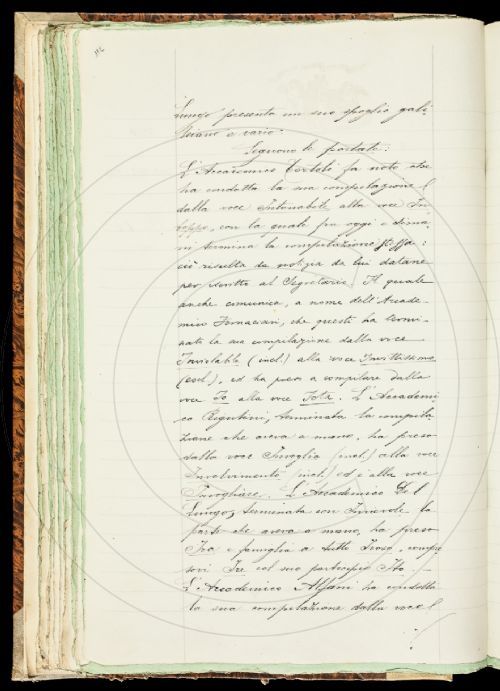 Lungo presenta un suo spoglio gali-
leiano e vario.
Seguono le portate:
L'Accademico Tortoli fa noto che
ha condotta la sua compilazione
dalla voce Intonabile alla voce In
toppo, con la quale fra oggi e doma-
ni termina la compilazione stessa:
ciò risulta da notizia da lui datane
per iscritto al Segretario. Il quale
anche comunica, a nome dell'Accade-
mico Fornaciari, che questi ha termi-
nata la sua compilazione dalla voce
Inviolabile (incl.) alla voce Invittissimo
(escl.), ed ha preso a compilare dalla
voce Io alla voce Iota. L'Accademi
co Rigutini, terminata la compila
zione che aveva a mano, ha preso
dalla voce Invoglia (incl.) alla voce
Involvimento (incl.) ed è alla voce
Invogliare. L'Accademico Del
Lungo, terminata con la
parte che aveva a mano, ha preso
Ira e famiglia a tutto Iroso, compre
sovi Ire col suo participio Ito.
L'Accademico Alfani ha condotta
la sua compilazione dalla voce